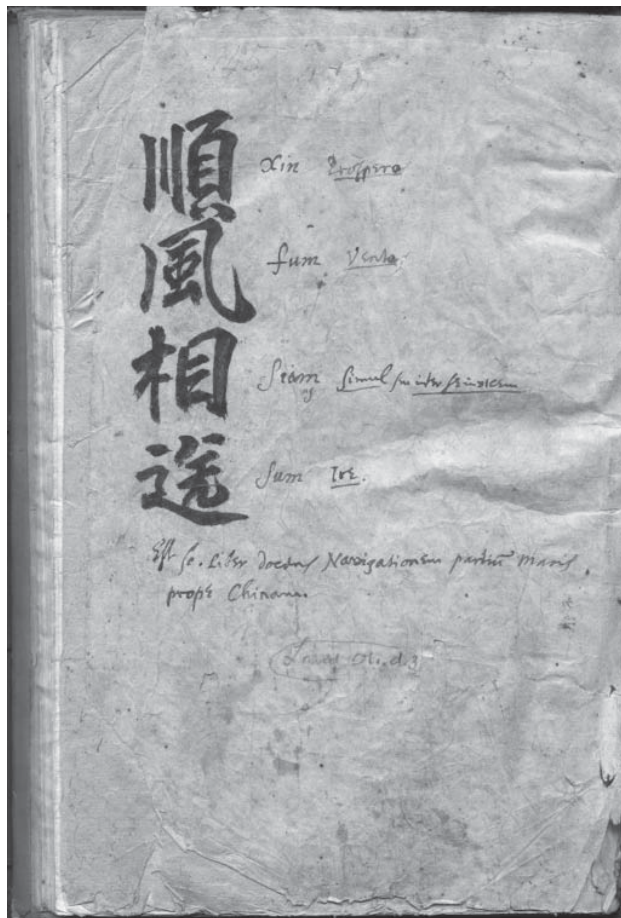 順風相送
xin prospero
fum vento
siam simul seu inter se invicem
sum ire.
Est sc. Liber docens Navigationem partium maris
prope Chinam.